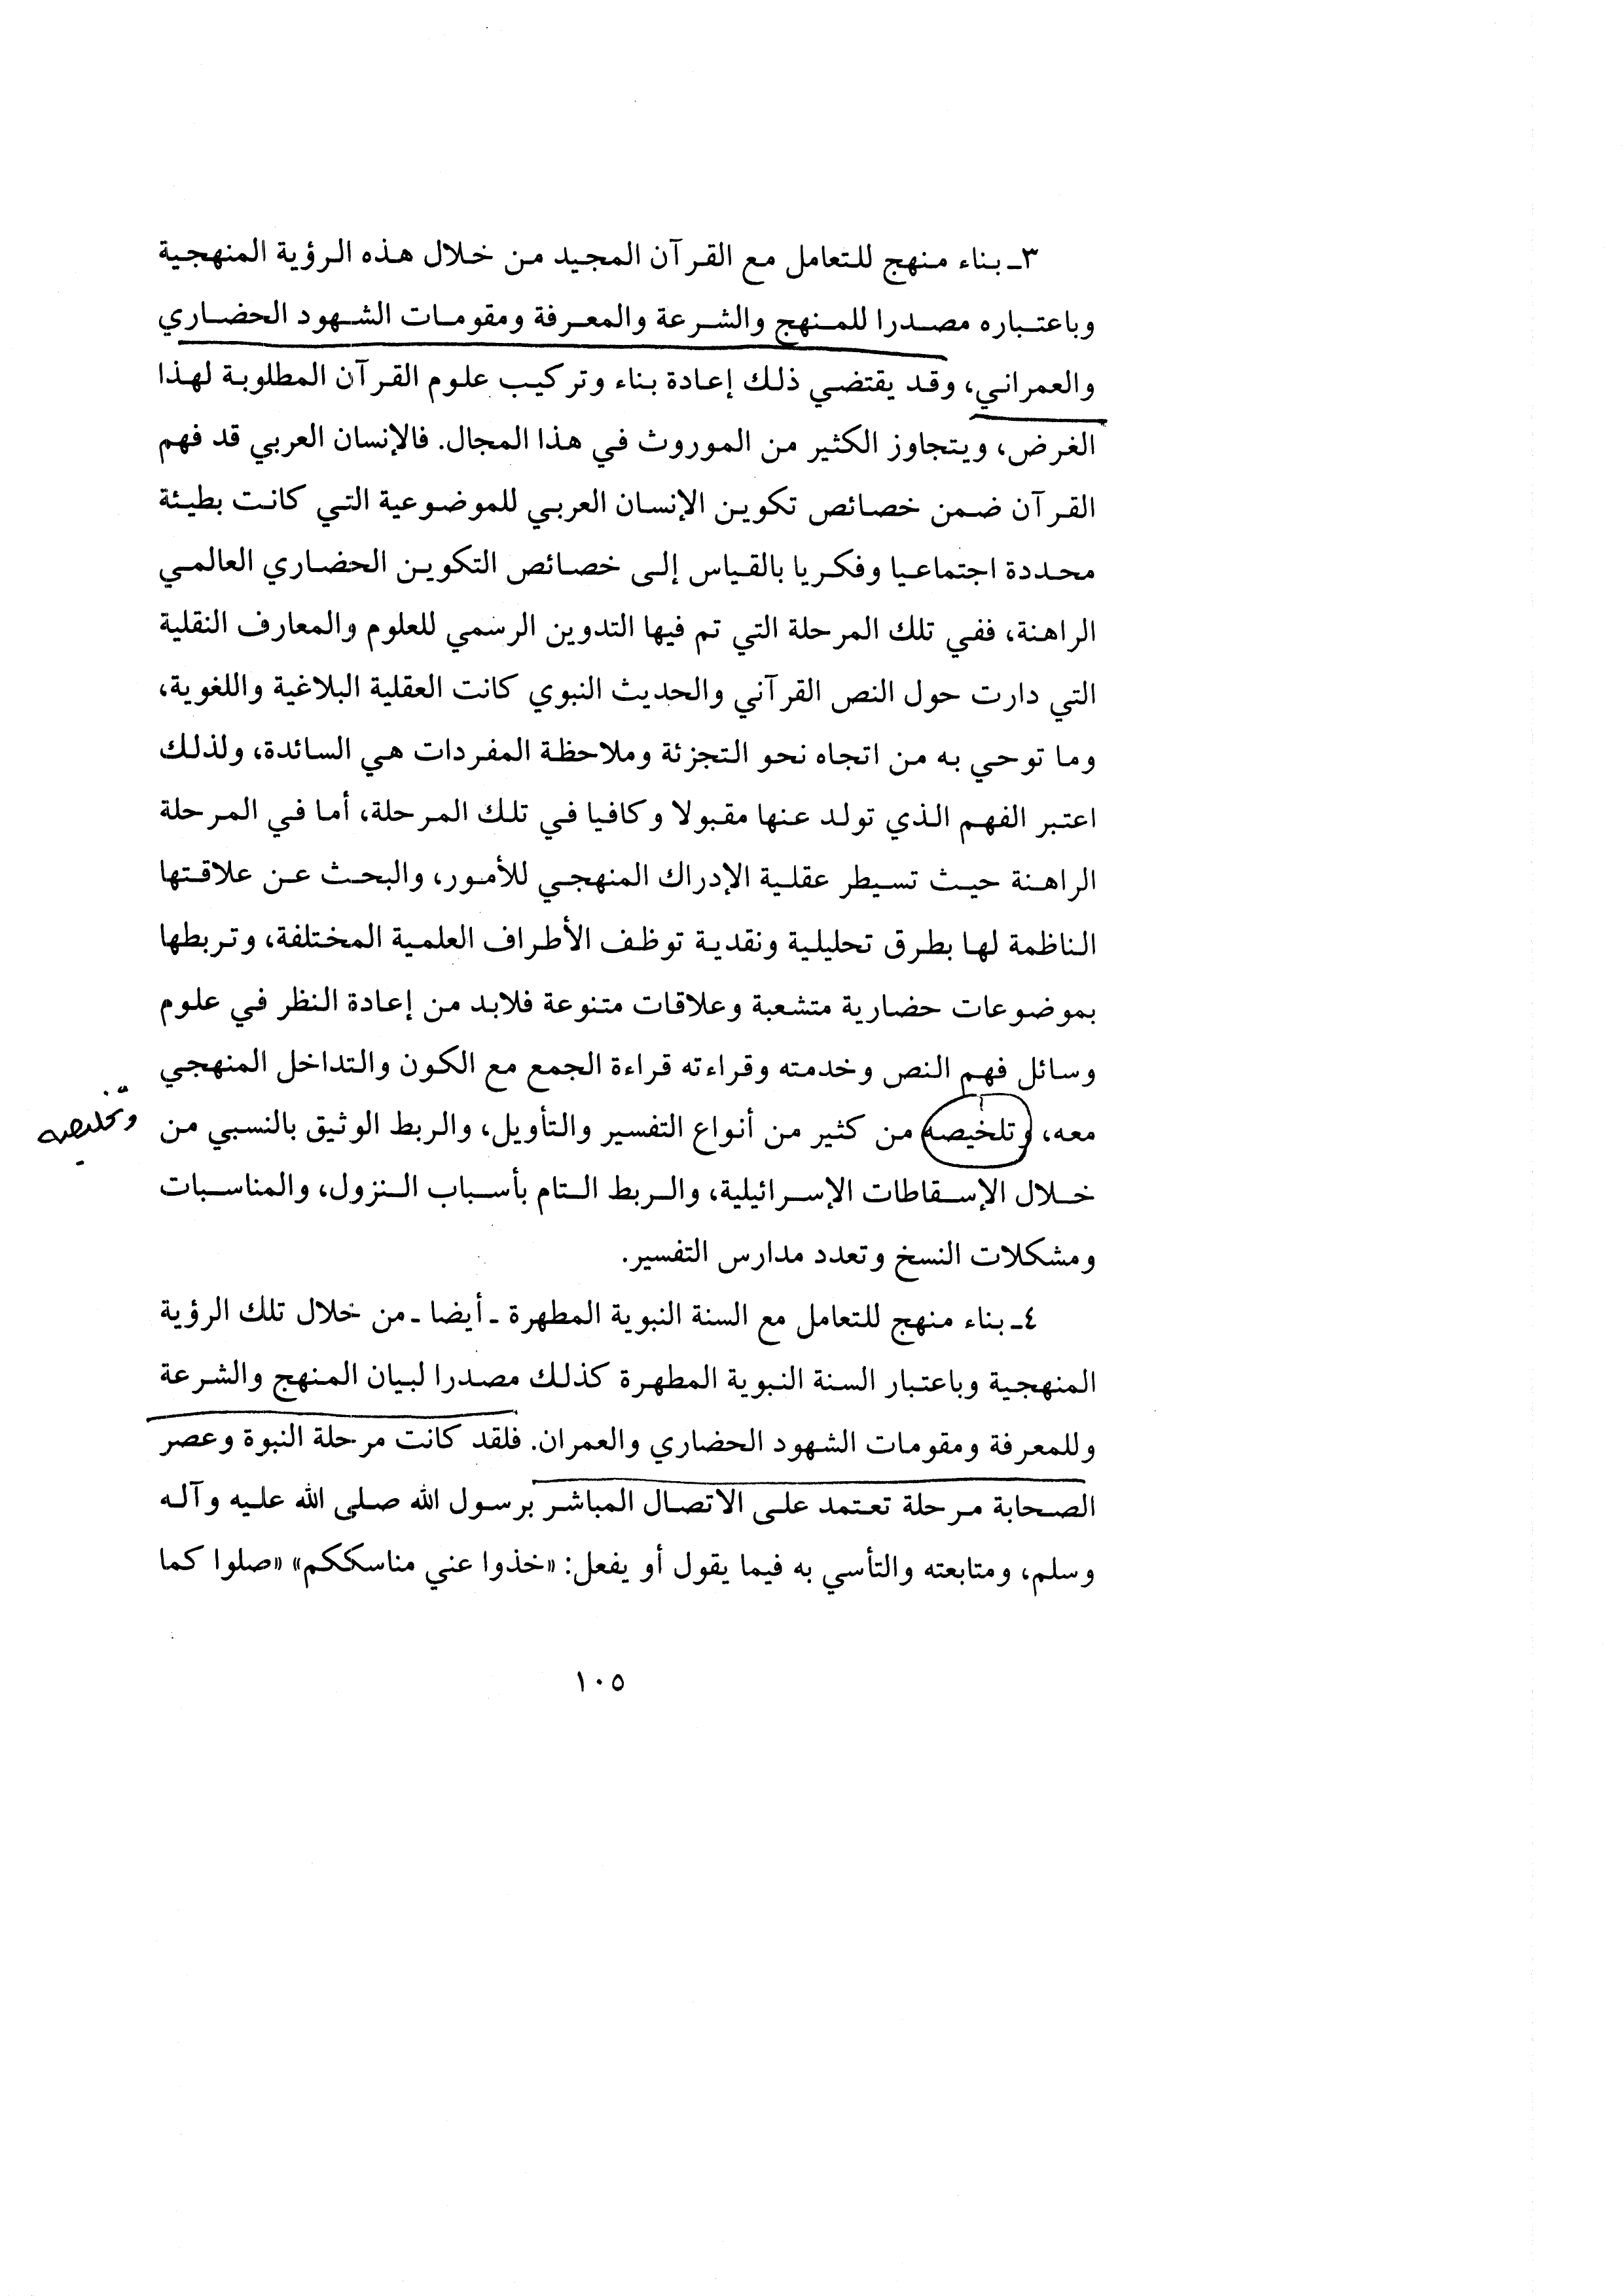 ٣ـ بناء منهج للتعامل مع القرآن المجيد من خلال هذه الرؤية المنهجية
وباعتباره مصدرا للمنهج والشرعة والمعرفة ومقومات الشهود الحضاري
والعمراني، وقد يقتضي ذلك إعادة بناء وتركيب علوم القرآن المطلوبة لهذا
الغرض، ويتجاوز الكثير من الموروث في هذا المجال. فالإنسان العربي قد فهم
القرآن ضمن خصائص تكوين الإنسان العربي للموضوعية التي كانت بطيئة
محددة اجتماعيا وفكريا بالقياس إلى خصائص التكوين الحضاري العالمي
الراهنة، ففي تلك المرحلة التي تم فيها التدوين الرسمي للعلوم والمعارف النقلية
التي دارت حول النص القرآني والحديث النبوي كانت العقلية البلاغية واللغوية،
وما توحي به من اتجاه نحو التجزئة وملاحظة المفردات هي السائدة، ولذلك
اعتبر الفهم الذي تولد عنها مقبولا وكافيا في تلك المرحلة، أما في المرحلة
الراهنة حيث تسيطر عقلية الإدراك المنهجي للأمور، والبحث عن علاقتها
الناظمة لها بطرق تحليلية ونقدية توظف الأطراف العلمية المختلفة، وتربطها
بموضوعات حضارية متشعبة وعلاقات متنوعة فلابد من إعادة النظر في علوم
وسائل فهم النص وخدمته وقراءته قراءة الجمع مع الكون والتداخل المنهجي
معه، وتلخيصه من كثير من أنواع التفسير والتأويل، والربط الوثيق بالنسبي من
وتخليصه
خلال الإسقاطات الإسرائيلية، والربط التام بأسباب النزول، والمناسبات
ومشكلات النسخ وتعدد مدارس التفسير.
٤ـ بناء منهج للتعامل مع السنة النبوية المطهرة ـ أيضا ـ من خلال تلك الرؤية
المنهجية وباعتبار السنة النبوية المطهرة كذلك مصدرا لبيان المنهج والشرعة
وللمعرفة ومقومات الشهود الحضاري والعمران. فلقد كانت مرحلة النبوة وعصر
الصحابة مرحلة تعتمد على الاتصال المباشر برسول الله صلى الله عليه وآله
وسلم، ومتابعته والتأسي به فيما يقول أو يفعل: «خذوا عني مناسككم» «صلوا كما
١٠٥